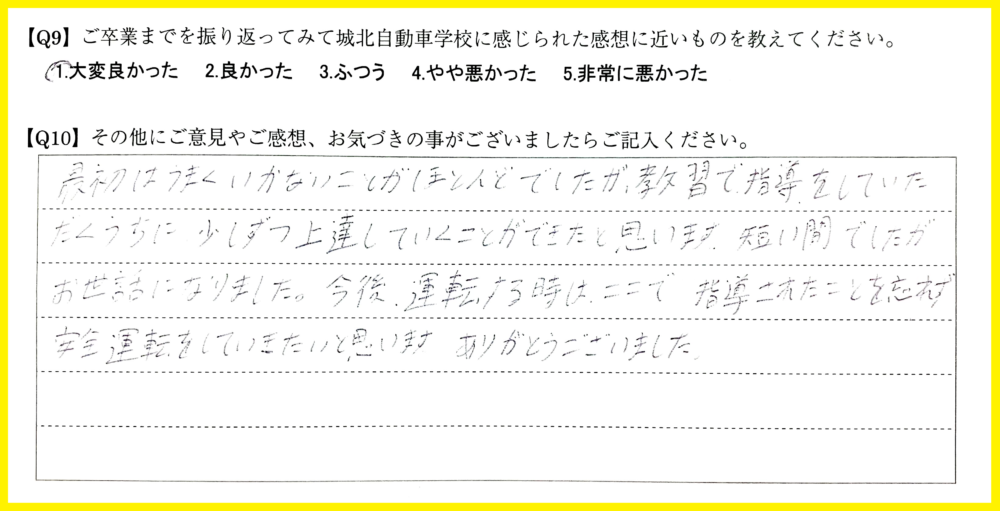 【Q9】ご卒業までを振り返ってみて城北自動車学校に感じられた感想に近いものを教えてください。
1.大変良かった 2.良かった 3.ふつう 4.やや悪かった 5.非常に悪かった
【Q10】その他にご意見やご感想、お気づきの事がございましたらご記入ください。
最初はうまくいかないことがほとんどでしたが、教習で指導をしていた
だくうちに少しずつ上達していくことができたと思います。短い間でしたが
お世話になりました。今後、運転する時は、ここで指導されたことを忘れず
安全運転をしていきたいと思います ありがとうございました。